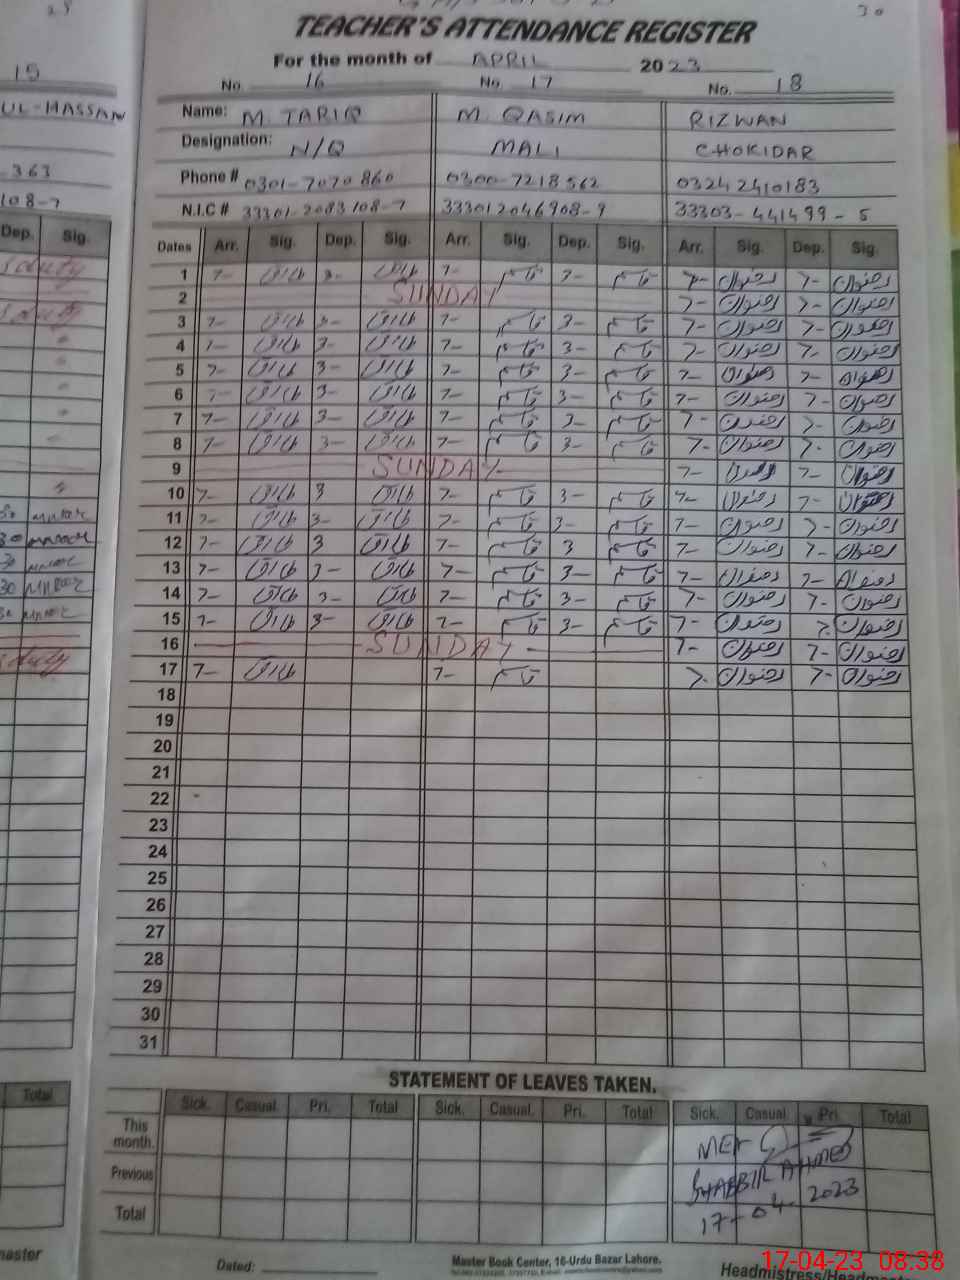 30
TEACHER'S ATTENDANCE REGISTER
For the month of APRIL 2023
No 16 No. 17 No. 18
15
UL-HASSAN
363
108-7
Dep. Sig.
Name: M. TARIQ M. QASIM RIZWAN
Designation: N/Q MALI CHOKIDAR
Phone # 0301-7070860 0300-7218562 03242410183
N.I.C # 33301-2083108-7 333012046908-9 33303-441499-5
Dates Arr. Sig. Dep. Sig. Arr. Sig. Dep. Sig. Arr. Sig. Dep. Sig.
1 7- طارق 3- طارق 7- قاسم 3- قاسم 7- رضوان 7- رضوان
2 SUNDAY 7- رضوان 7- رضوان
3 7- طارق 3- طارق 7- قاسم 3- قاسم 7- رضوان 7- رضوان
4 7- طارق 3- طارق 7- قاسم 3- قاسم 7- رضوان 7- رضوان
5 7- طارق 3- طارق 7- قاسم 3- قاسم 7- رضوان 7- رضوان
6 7- طارق 3- طارق 7- قاسم 3- قاسم 7- رضوان 7- رضوان
7 7- طارق 3- طارق 7- قاسم 3- قاسم 7- رضوان 7- رضوان
8 7- طارق 3- طارق 7- قاسم 3- قاسم 7- رضوان 7- رضوان
9 SUNDAY 7- رضوان 7- رضوان
10 7- طارق 3 طارق 7- قاسم 3- قاسم 7- رضوان 7- رضوان
11 7- طارق 3- طارق 7- قاسم 3- قاسم 7- رضوان 7- رضوان
12 7- طارق 3 طارق 7- قاسم 3 قاسم 7- رضوان 7- رضوان
13 7- طارق 3- طارق 7- قاسم 3- قاسم 7- رضوان 7- رضوان
14 7- طارق 3- طارق 7- قاسم 3- قاسم 7- رضوان 7- رضوان
15 7- طارق 3- طارق 7- قاسم 3- قاسم 7- رضوان 7- رضوان
16 SUNDAY 7- رضوان 7- رضوان
17 7- طارق 7- قاسم 7- رضوان 7- رضوان
18
19
20
21
22
23
24
25
26
27
28
29
30
31
STATEMENT OF LEAVES TAKEN.
Sick. Casual. Pri. Total Sick. Casual. Pri. Total Sick. Casual. Pri. Total
This month.
Previous
Total
Total
SHABBIR AHMED
17-04-2023
Dated:
Master Book Center, 16-Urdu Bazar Lahore.
17-04-23 08:38